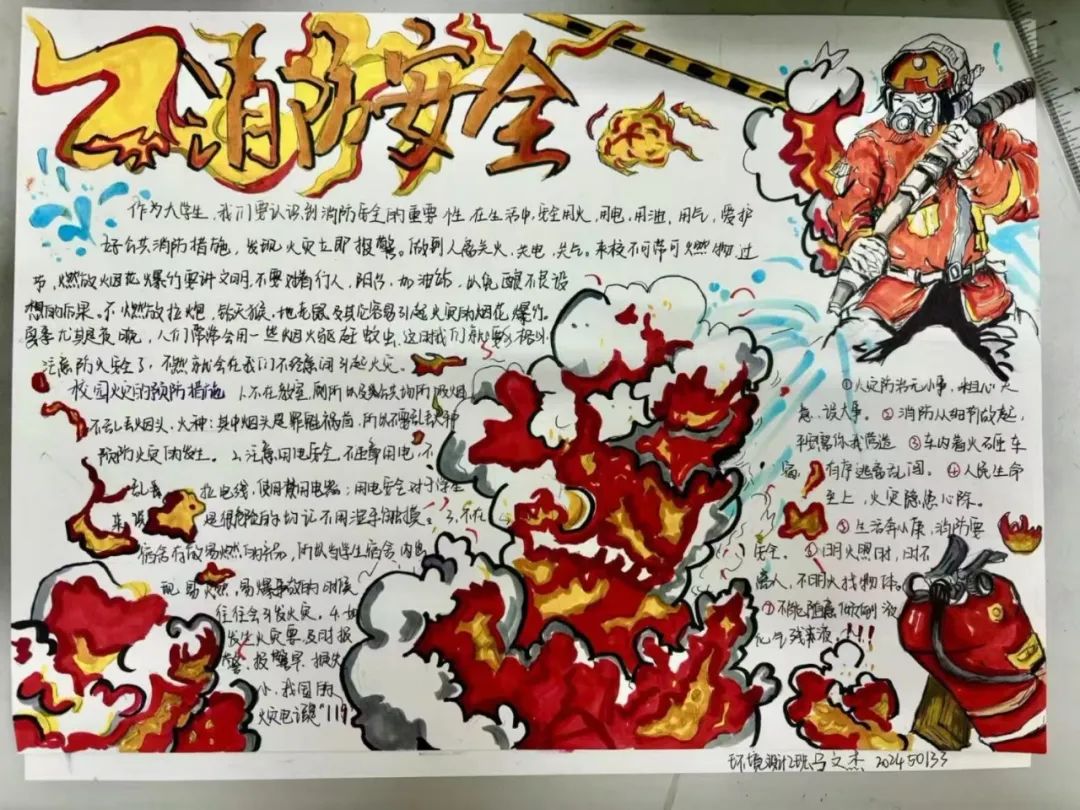 消防安全
作为大学生,我们要认识到消防安全的重要性 在生活中,安全用火,用电,用油,用气,爱护
好公共消防措施,发现火灾立即报警。做到人离关火,关电,关气。来校不可带可燃物 过
节,燃放烟花爆竹要讲文明,不要对着行人,阴沟,加油站,以免酿不良设
想的后果。不燃放拉炮,钻天猴,地老鼠及其它容易引起火灾的烟花爆竹。
夏季尤其是夜晚,人们常常会用一些烟火驱赶蚊虫,这时我们就要
注意防火安全了,不然就会在我们不经意间引起火灾。
校园火灾的预防措施 1.不在教室,厕所以及公共场所吸烟
不乱丢烟头,火种:其中烟头是罪魁祸首,所以不要乱丢火种
预防火灾的发生。2.注意用电安全 不违章用电,不
乱 拉电线,使用 用电器;用电安全对于学生
来说 是很危险的 切记不用湿手 。3.不在
宿舍存放易燃的物品,所以当学生宿舍内出
现易燃,易爆 的时候
往往会引发火灾。4.如
发生火灾要及时报
警,报警早,损失
小,我国的
火灾电话是"119
①火灾防治无小事,粗心大
意 设大事。②消防从细节做起,
平安靠你我营造 ③车内着火砸车
窗,有序逃离乱闯。④人民生命
至上,火灾隐患心除。
⑤生活奔小康,消防要
安全。⑥明火照时,时不
离人,不用明火找物体。
⑦不能随意倾倒液
化气残液。!!!
环境设计2班马文杰 202450133